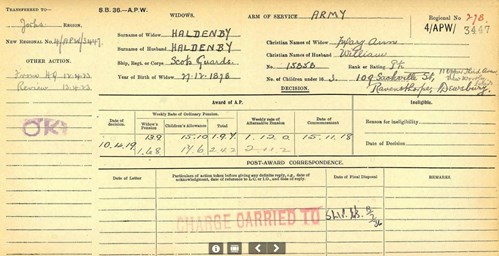 TRANSFERRED TO—
S.B. 36.—A.P.W.
WIDOWS.
ARM OF SERVICE ARMY
Regional No 278
Yorks REGION.
4/APW/ 3447
NEW REGIONAL No. 4/APW/3447.
Surname of Widow HALDENBY
Christian Names of Widow Mary Ann
Surname of Husband HALDENBY
Christian Names of Husband William
OTHER ACTION.
Ship, Regt. or Corps Scots Guards.
No. 15058
Rank or Rating Pte
Year of Birth of Widow 27.12.1878
No. of Children under 3.
109 Sackville St,
Ravensthorpe, Dewsbury
Review
DECISION.
Award of A.P.
Ineligible.
Date of Decision.
Weekly Rate of Ordinary Pension.
Widow's Pension
Children's Allowance
Total
Weekly rate of Alternative Pension
Date of Commencement.
Reason for ineligibility
OK
13.9
15.10
1.9.7
1.12.0
15.11.18
10.4.19
1.6.8
17.6
2.4.2
2.11.2
Date of Decision
POST-AWARD CORRESPONDENCE.
Date of Letter
Particulars of action taken before giving any definite reply, e.g., date of acknowledgment, date of reference to L.C. or I.O., and date of reply.
Date of Final Disposal
REMARKS.
CHARGE CARRIED TO